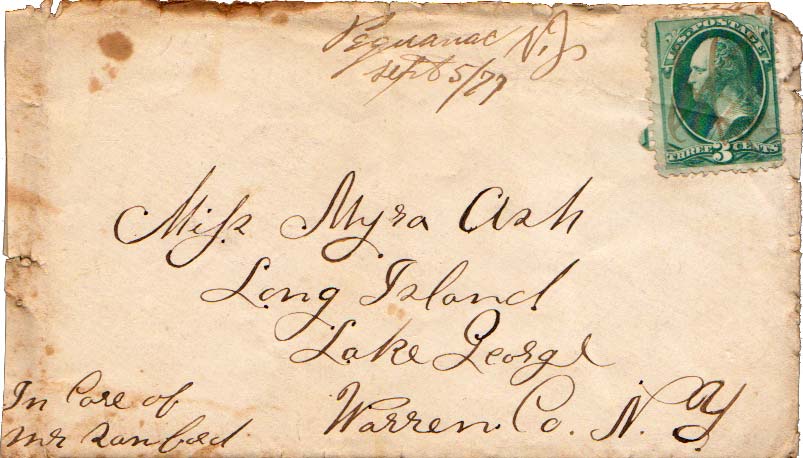 Pequanac N.J.
Sept 5/77
U.S. POSTAGE
THREE 3 CENTS
Miss Myra Ash
Long Island
Lake George
Warren. Co. N. Y
In Care of
Mr Sanford